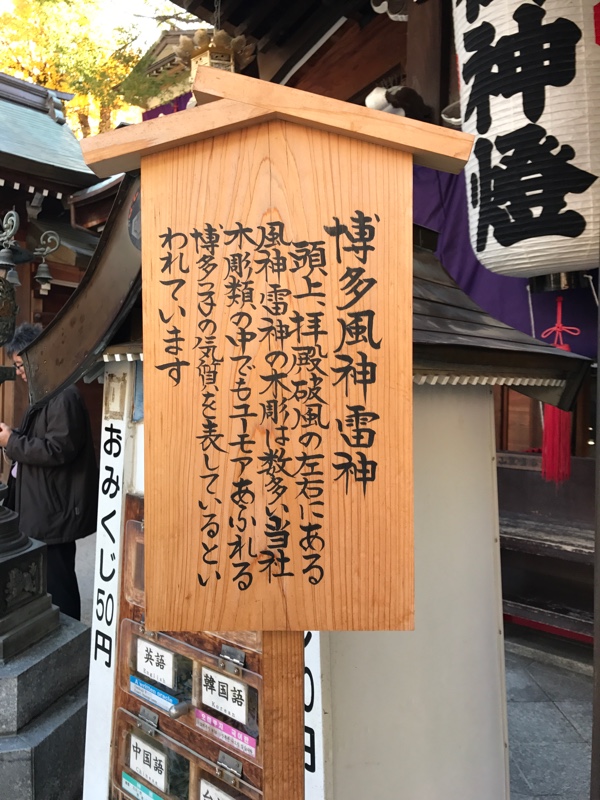 博多風神雷神
頭上、拝殿破風の左右にある
風神、雷神の木彫は数多い当社
木彫類の中でもユーモアあふれる
博多っ子の気質を表しているとい
われています
神燈
おみくじ50円
英語
English
韓国語
Korean
中国語
Chinese
円